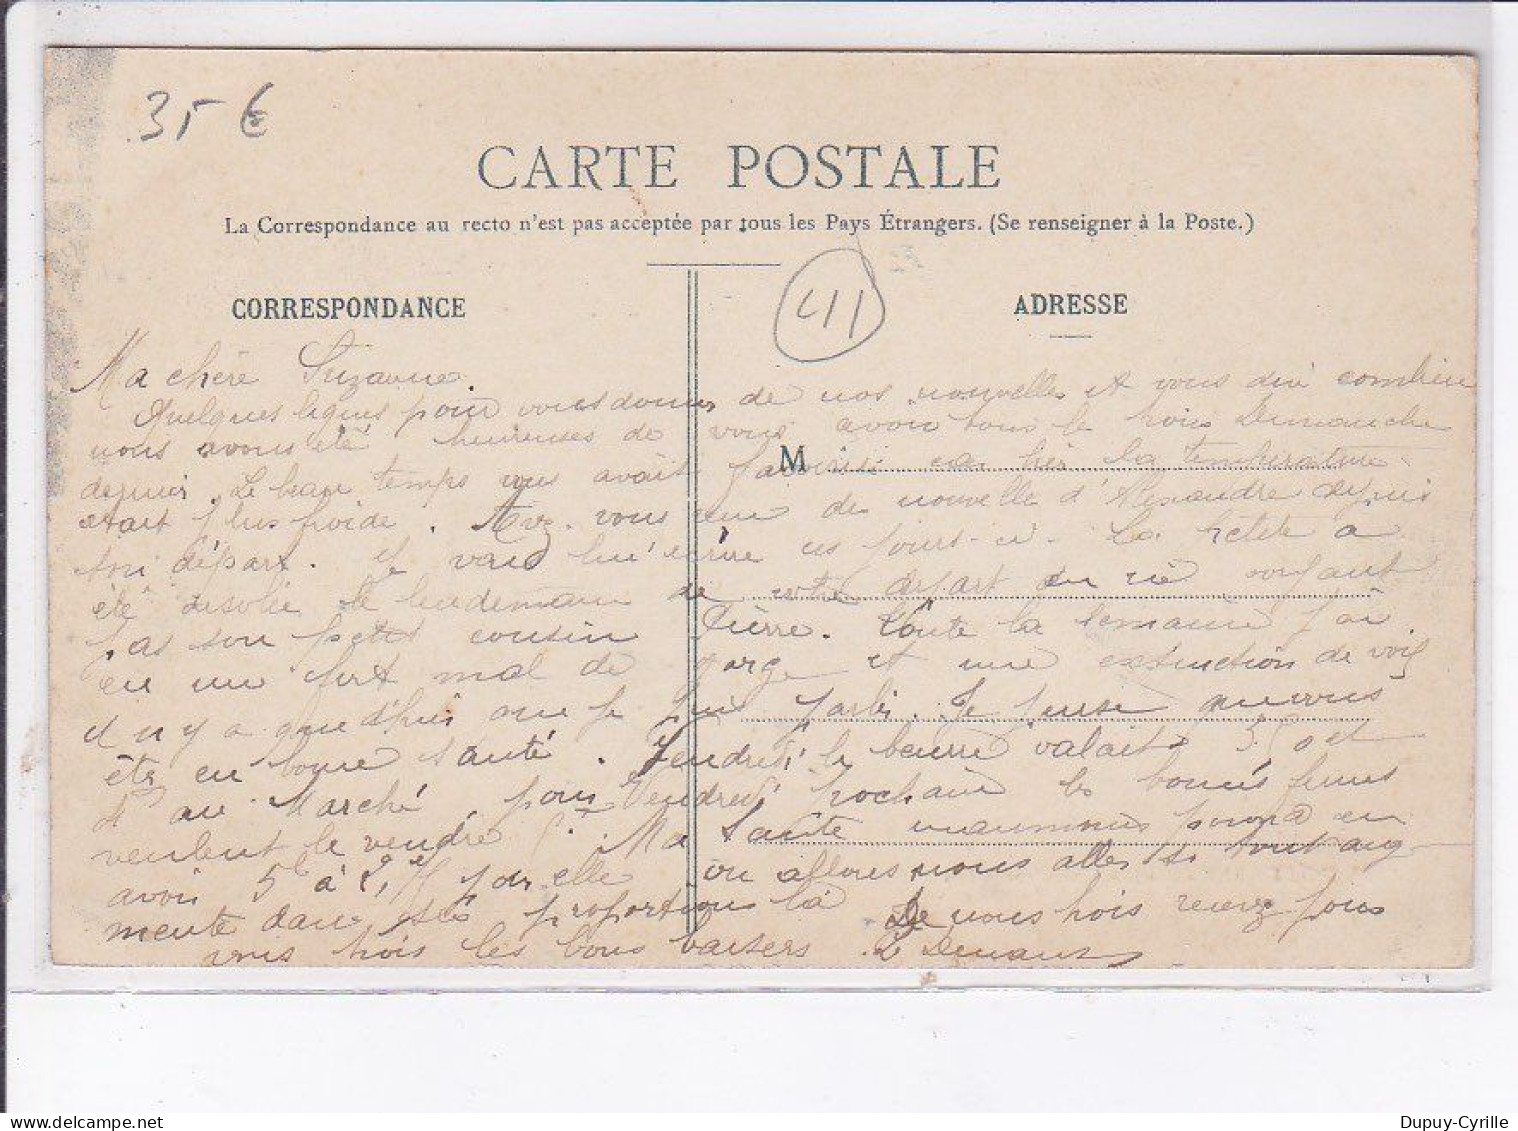 35 €
CARTE POSTALE
La Correspondance au recto n'est pas acceptée par tous les Pays Étrangers. (Se renseigner à la Poste.)
41
CORRESPONDANCE
ADRESSE
Ma chère Suzanne.
Quelques lignes pour vous donner de nos nouvelles et vous dire combien
nous avons été heureuses de vous avoir tous le trois Dimanche
dernier. Le beau temps vous avait favorisé car hier la température
M
était plus froide. Avez-vous eu de nouvelle d'Alexandre depuis
ton départ. Je vais lui écrire ces jours-ci. La petite a
été désolée le lendemain de votre départ en voyant
pas son petit cousin Pierre. Toute la semaine j'ai
eu un fort mal de gorge et une extinction de voix
il n'y a que d'hier que je puis parler. Je pense que vous
êtes en bonne santé. Vendredi le beurre valait et
au Marché, pour Vendredi prochain les bonnes femmes
veulent le vendre Ma
avoir 5 à pour elle où allons nous aller si tout aug-
mente dans ces proportions là De nous trois recevez pour
vous trois les bons baisers.
Dupuy-Cyrille